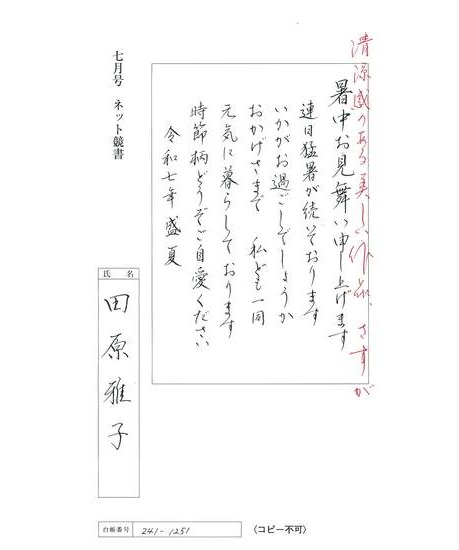 清涼感のある美しい作品、さすが
暑中お見舞い申し上げます
連日猛暑が続いております
いかがお過ごしでしょうか
おかげさまで 私ども一同
元気に暮らしております
時節柄どうぞご自愛ください
令和七年 盛夏
七月号 ネット競書
氏名
田原雅子
台帳番号
241-1251
〈コピー不可〉